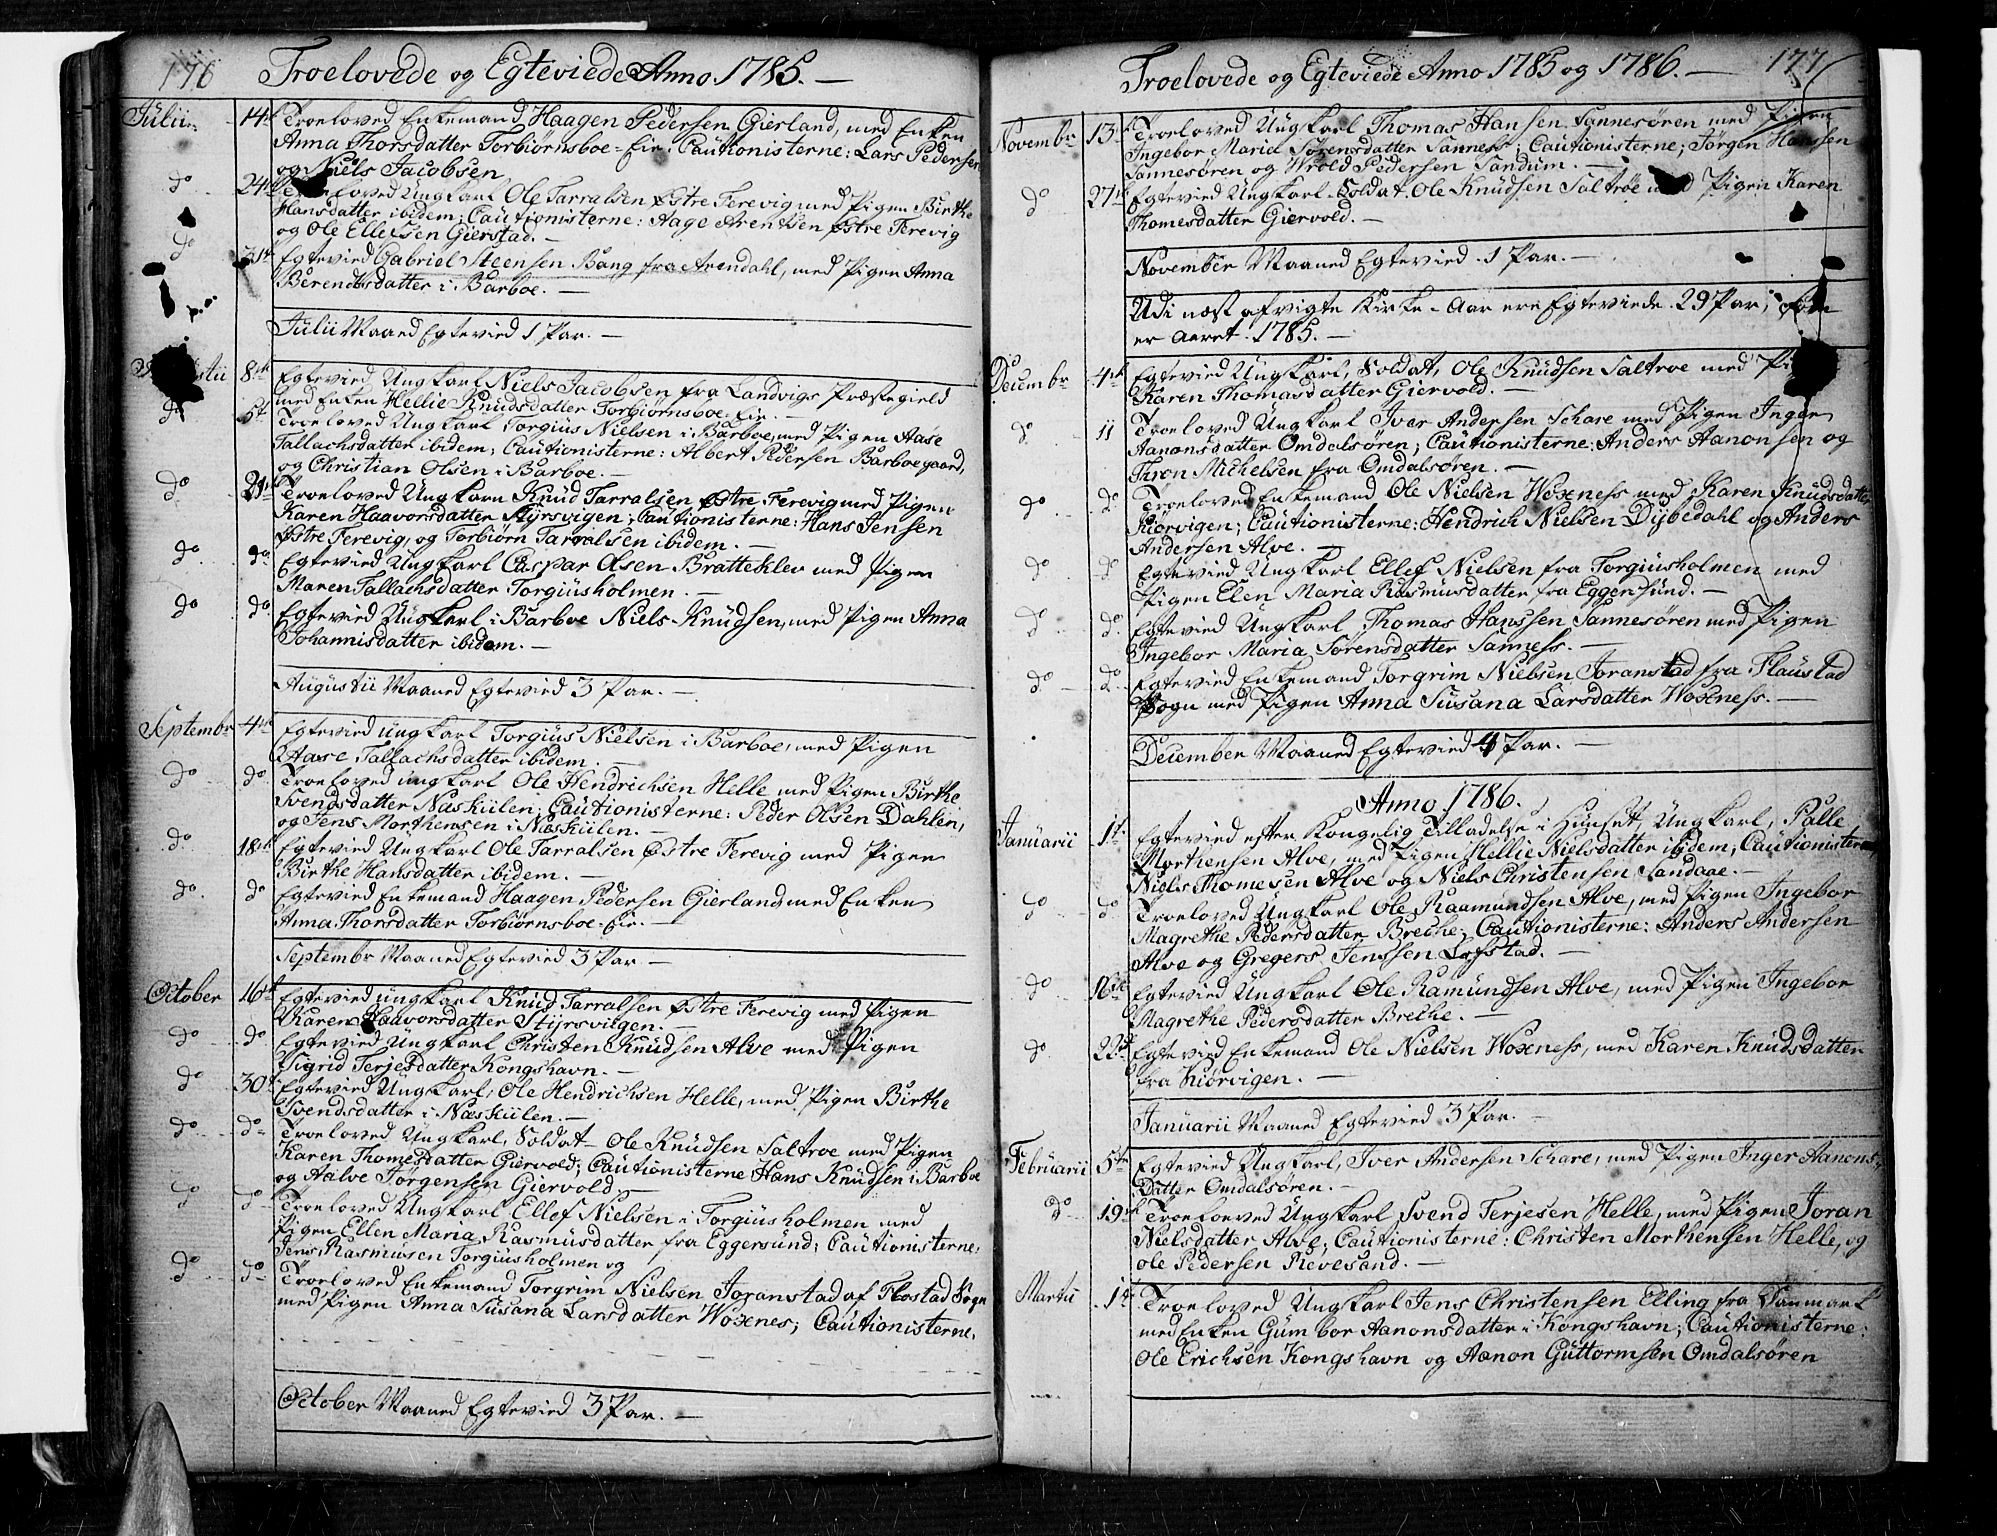 176 Troelovede og Egteviede Anno 1785. —
Julii 14de Troeloved Enkemand Haagen Pedersen Gierland, med Enken
Anna Thorsdatter Torbiørnsboe-Eie; Cautionisterne: Lars Pedersen
og Niels Jacobsen
do 24de Troeloved Ungkarl Ole Tarralsen Østre Ferevig med Pigen Birthe
Hansdatter ibidem; Cautionisterne: Aage Arentsen Østre Ferevig
og Ole Ellefsen Gierstad. —
do 31te Egtevied Gabriel Steensen Bang fra Arendahl, med Pigen Anna
Berendtsdatter i Barboe. —
Julii Maaned Egtevied 1 Par. —
8de Egtevied Ungkarl Niels Jacobsen fra Landvigs Præstegield
med Enken Hellie Knudsdatter Torbiørnsboe-Eie. —
do 5te Troeloved Ungkarl Torgius Nielsen i Barboe, med Pigen Aase
Tallachsdatter ibidem; Cautionisterne: Albert Pedersen Barboegaard,
og Christian Olsen i Barboe. —
do 21de Troeloved Ungkarn Knud Tarralsen Østre Ferevig med Pigen
Karen Haavorsdatter Stÿrsvigen; Cautionisterne: Hans Jensen
Østre Ferevig, og Torbiørn Tarralsen ibidem. —
do do Egtevied Ungkarl Caspar Olsen Bratteklev med Pigen
Maren Tallachsdatter Torgiusholmen. —
do do Egtevied Ungkarl i Barboe Niels Knudsen, med Pigen Anna
Johannisdatter ibidem. —
Augustii Maaned Egtevied 3 Par. —
Septembr 4de Egtevied ungkarl Torgius Nielsen i Barboe, med Pigen
Aase Tallachsdatter ibidem. —
do do Troeloved ungkarl Ole Hendrichsen Helle med Pigen Birthe
Svendsdatter Næskiilen; Cautionisterne: Peder Olsen Dahlen,
og Jens Morthensen i Næskiilen. —
do 18de Egtevied Ungkarl Ole Tarralsen Østre Ferevig med Pigen
Birthe Hansdatter ibidem. —
do do Egtevied Enkemand Haagen Pedersen Gierland med Enken
Anna Thorsdatter Torbiørnsboe-Eie. —
Septembr Maaned Egtevied 3 Par. —
October 16de Egtevied ungkarl Knud Tarralsen Østre Ferevig med Pigen
Karen Haavorsdatter Stÿrsvigen. —
do do Egtevied Ungkarl Christen Knudsen Alve med Pigen
Sigrid Terjesdatter Kongshavn. —
do 30te Egtevied Ungkarl, Ole Hendrichsen Helle, med Pigen Birthe
Svendsdatter i Næskiilen. —
do do Troeloved Ungkarl, Soldat Ole Knudsen Saltroe med Pigen
Karen Thomesdatter Giervold; Cautionisterne Hans Knudsen i Barboe
og Aalve Jørgensen Giervold. —
do do Troeloved Ungkarl Ellef Nielsen i Torgiusholmen med
Pigen Ellen Maria Rasmusdatter fra Eggersund; Cautionisterne:
Jens Rasmusen Torgiusholmen og
do do Troeloved Enkemand Torgrim Nielsen Joranstad af Flostad Sogn
med Pigen Anna Susana Larsdatter Woxnes; Cautionisterne.
October Maaned Egtevied 3 Par. —
Troelovede og Egteviede Anno 1785 og 1786. — 177
Novembr 13de Troeloved Ungkarl Thomas Hansen Sannesøren med Pigen
Ingebor Maria Sørensdatter Sanness; Cautionisterne; Jørgen Hanssen
Sannesøren og Wrold Pedersen Sandum. —
do 27de Egtevied Ungkarl Soldat Ole Knudsen Saltroe med Pigen Karen
Thomesdatter Giervold. —
November Maaned Egtevied 1 Par. —
Udi næst afvigte Kirke-Aar ere Egteviede 29 Par; som
er Aaret 1785. —
Decembr 4de Egtevied Ungkarl, Soldat, Ole Knudsen Saltroe med
Karen Thomasdatter Giervold. —
do 11 Troeloved Ungkarl Iver Andersen Schare med Pigen Inger
Aanonsdatter Omdalsøren; Cautionisterne: Anders Aanonsen og
Thron Michelsen fra Omdalsøren. —
do do Troeloved Enkemand Ole Nielsen Woxness med Karen Knudsdatter
Kiørvigen; Cautionisterne: Hendrich Nielsen Dÿbedahl og Anders
Andersen Alve. —
do do Egtevied Ungkarl Ellef Nielsen fra Torgiusholmen med
Pigen Elen Maria Rasmusdatter fra Eggersund. —
do do Egtevied Ungkarl Thomas Hanssen Sannesøren med Pigen
Ingebor Maria Sørensdatter Sanness. —
do do Egtevied Enkemand Torgrim Nielsen Joranstad fra Flaustad
Sogn med Pigen Anna Susana Larsdatter Woxness. —
December Maaned Egtevied 4 Par. —
Anno 1786.
Januarii 1te Egtevied efter Kongelig Tilladelse i Huuset Ungkarl, Palle
Morthensen Alve, med Pigen Hellie Nielsdatter ibidem; Cautionisterne
Niels Thomesen Alve og Niels Christensen Sandaae. —
do do Troeloved Ungkarl Ole Raamundsen Alve, med Pigen Ingebor
Magrethe Pedersdatter Breche; Cautionisterne: Anders Andersen
Alve og Gregers Jenssen Lofstad. —
do 16de Egtevied Ungkarl Ole Ramundsen Alve, med Pigen Ingebor
Magrethe Pedersdatter Breche. —
do 22de Egtevied Enkemand Ole Nielsen Woxness, med Karen Knudsdatter
fra Kiørvigen. —
Januarii Maaned Egtevied 3 Par. —
Februarii 5te Egtevied Ungkarl, Iver Andersen Schare, med Pigen Inger Aanons-
Datter Omdalsøren. —
do 19de Troeloeved Ungkarl Svend Terjesen Helle, med Pigen Joran
Nielsdatter Alve; Cautionisterne: Christen Morthensen Helle, og
Ole Pedersen Revesand. —
Martii 1te Troeloved Ungkarl Jens Christensen Elling fra Danmark
med Enken Gumbor Aanonsdatter i Kongshavn; Cautionisterne:
Ole Erichsen Kongshavn og Aanon Guttormsen Omdalsøren